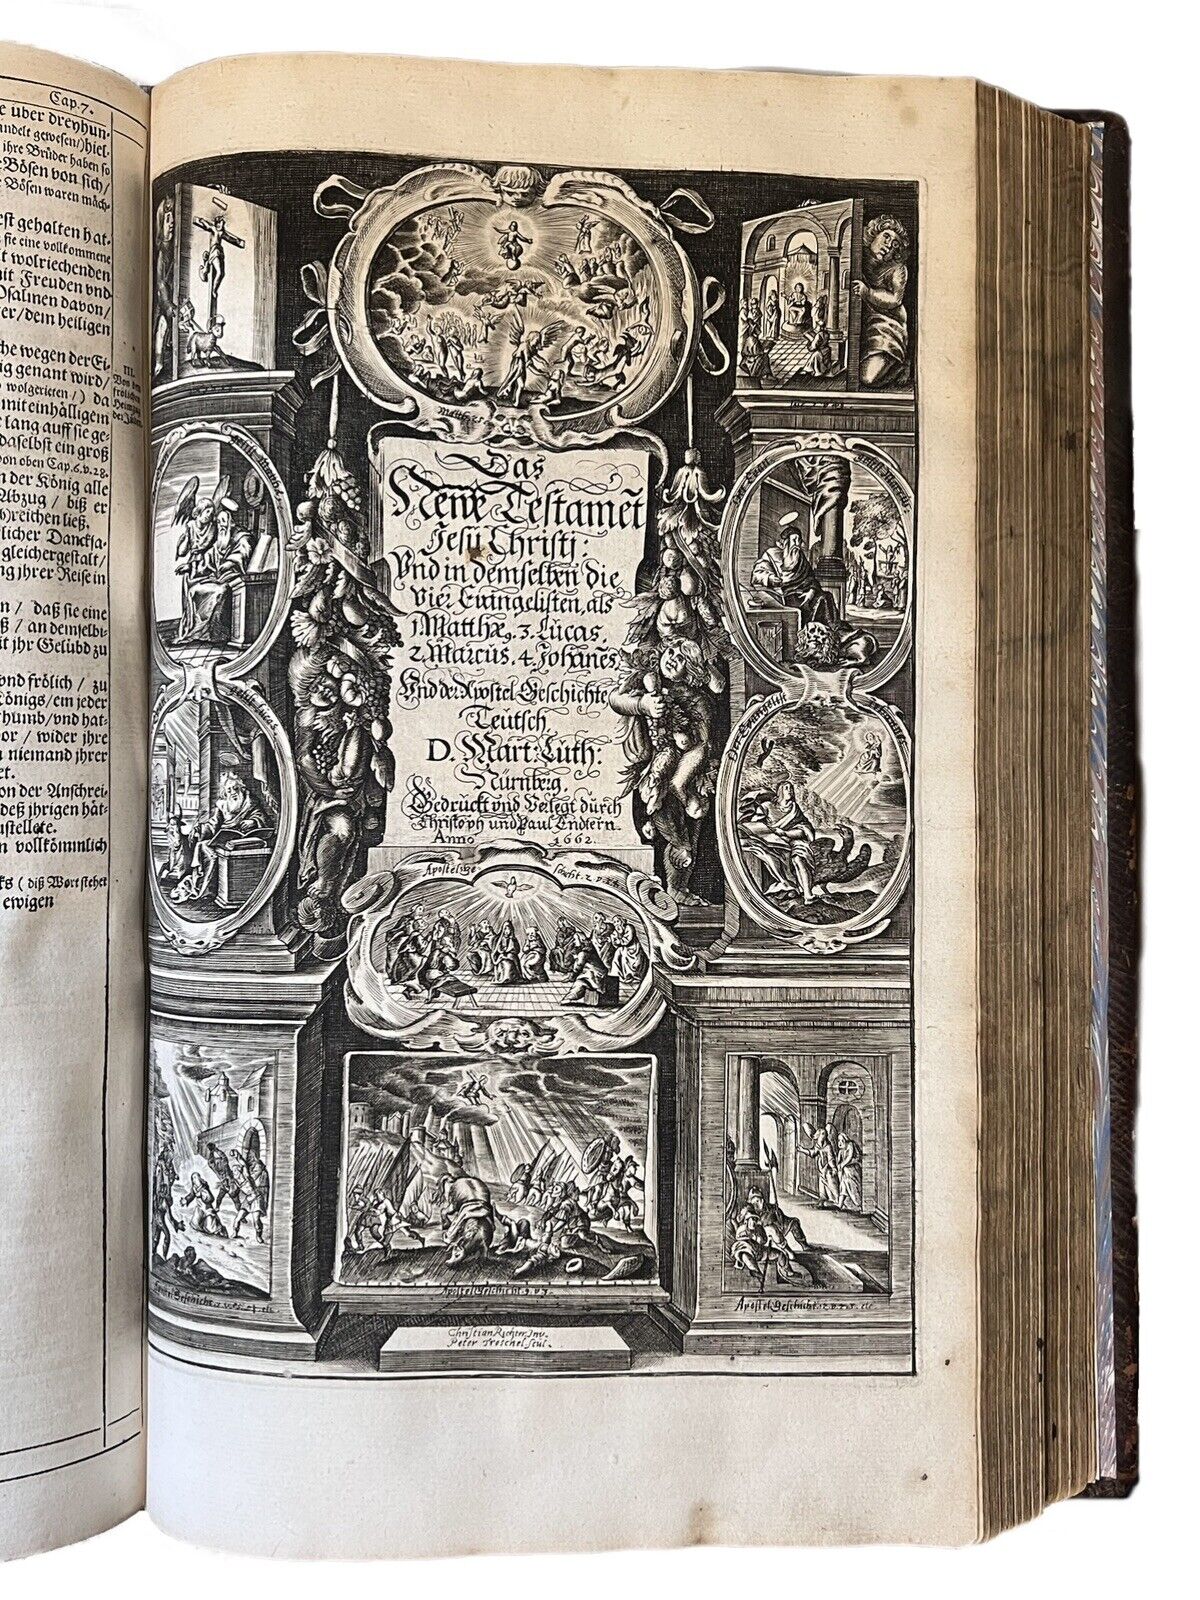 Cap. 7.
e uber dreyhun-
andelt gewesen/) hiel-
ihre Brüder haben so
Bösen von sich/
e Bösen waren mäch-
est gehalten hat-
sie eine vollkommene
t wolriechenden
it Freuden und
Psalmen davon/
er/dem heiligen
che wegen der Ei-
ig genant wird/
wolgerieten/) da
mit einhälligem
e lang auff sie ge-
daselbst ein groß
von oben Cap. 6. v. 28.
n der König alle
Abzug / biß er
reichen ließ.
licher Dancksa-
gleichergestalt/
ng jhrer Reise in
n / daß sie eine
ß / an demselbi-
it jhr Gelübd zu
und frölich / zu
Königs/ein jeder
humb/und hat-
or / wider jhre
n niemand jhrer
et.
on der Anschrei-
deß jhrigen hät-
ustellete.
n vollkömmlich
ks ( diß Wort stehet
ewigen
III.
Von dem
frölichen
der Jüden.
Matthæ
Das
Newe Testamēt
Jesu Christi:
Vnd in demselben die
vier Evangelisten, als
1. Matthæ9. 3. Lucas.
2. Marcus. 4. Johanēs,
Vnd der Apostel-Geschichte
Teutsch.
D. Mart: Luth:
Nürnberg.
Gedruckt vnd Verlegt durch
Christoph und Paul Endtern.
Anno 1662.
Apostel-Ge schicht. 2. v.
Der Evangelist
Apostel Geschicht. 9. v. 3.
Apostel-Geschicht. 12. v. 7. 8. etc
Christian Richter, Inv.
Peter Troschel Scul.